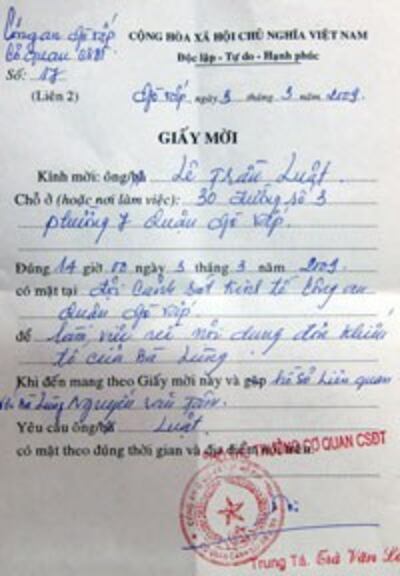 Công an Gò Vấp
Cơ quan CSĐT
CỘNG HÒA XÃ HỘI CHỦ NGHĨA VIỆT NAM
Độc lập - Tự do - Hạnh phúc
Số: 17
(Liên 2)
Gò Vấp ngày 3 tháng 3 năm 2009.
GIẤY MỜI
Kính mời: ông/bà Lê Trần Luật.
Chỗ ở (hoặc nơi làm việc): 30 đường số 3
phường 7 Quận Gò Vấp.
Đúng 14 giờ 00 ngày 3 tháng 3 năm 2009.
có mặt tại đội Cảnh sát Kinh tế Công an
Quận Gò Vấp.
để làm việc về nội dung đơn khiếu
tố của bà
Khi đến mang theo Giấy mời này và gặp hồ sơ liên quan
Nguyễn Tấn.
Yêu cầu ông/bà Luật
có mặt theo đúng thời gian và địa điểm nói trên.
TRƯỞNG CƠ QUAN CSĐT
Trung Tá. Trà Văn